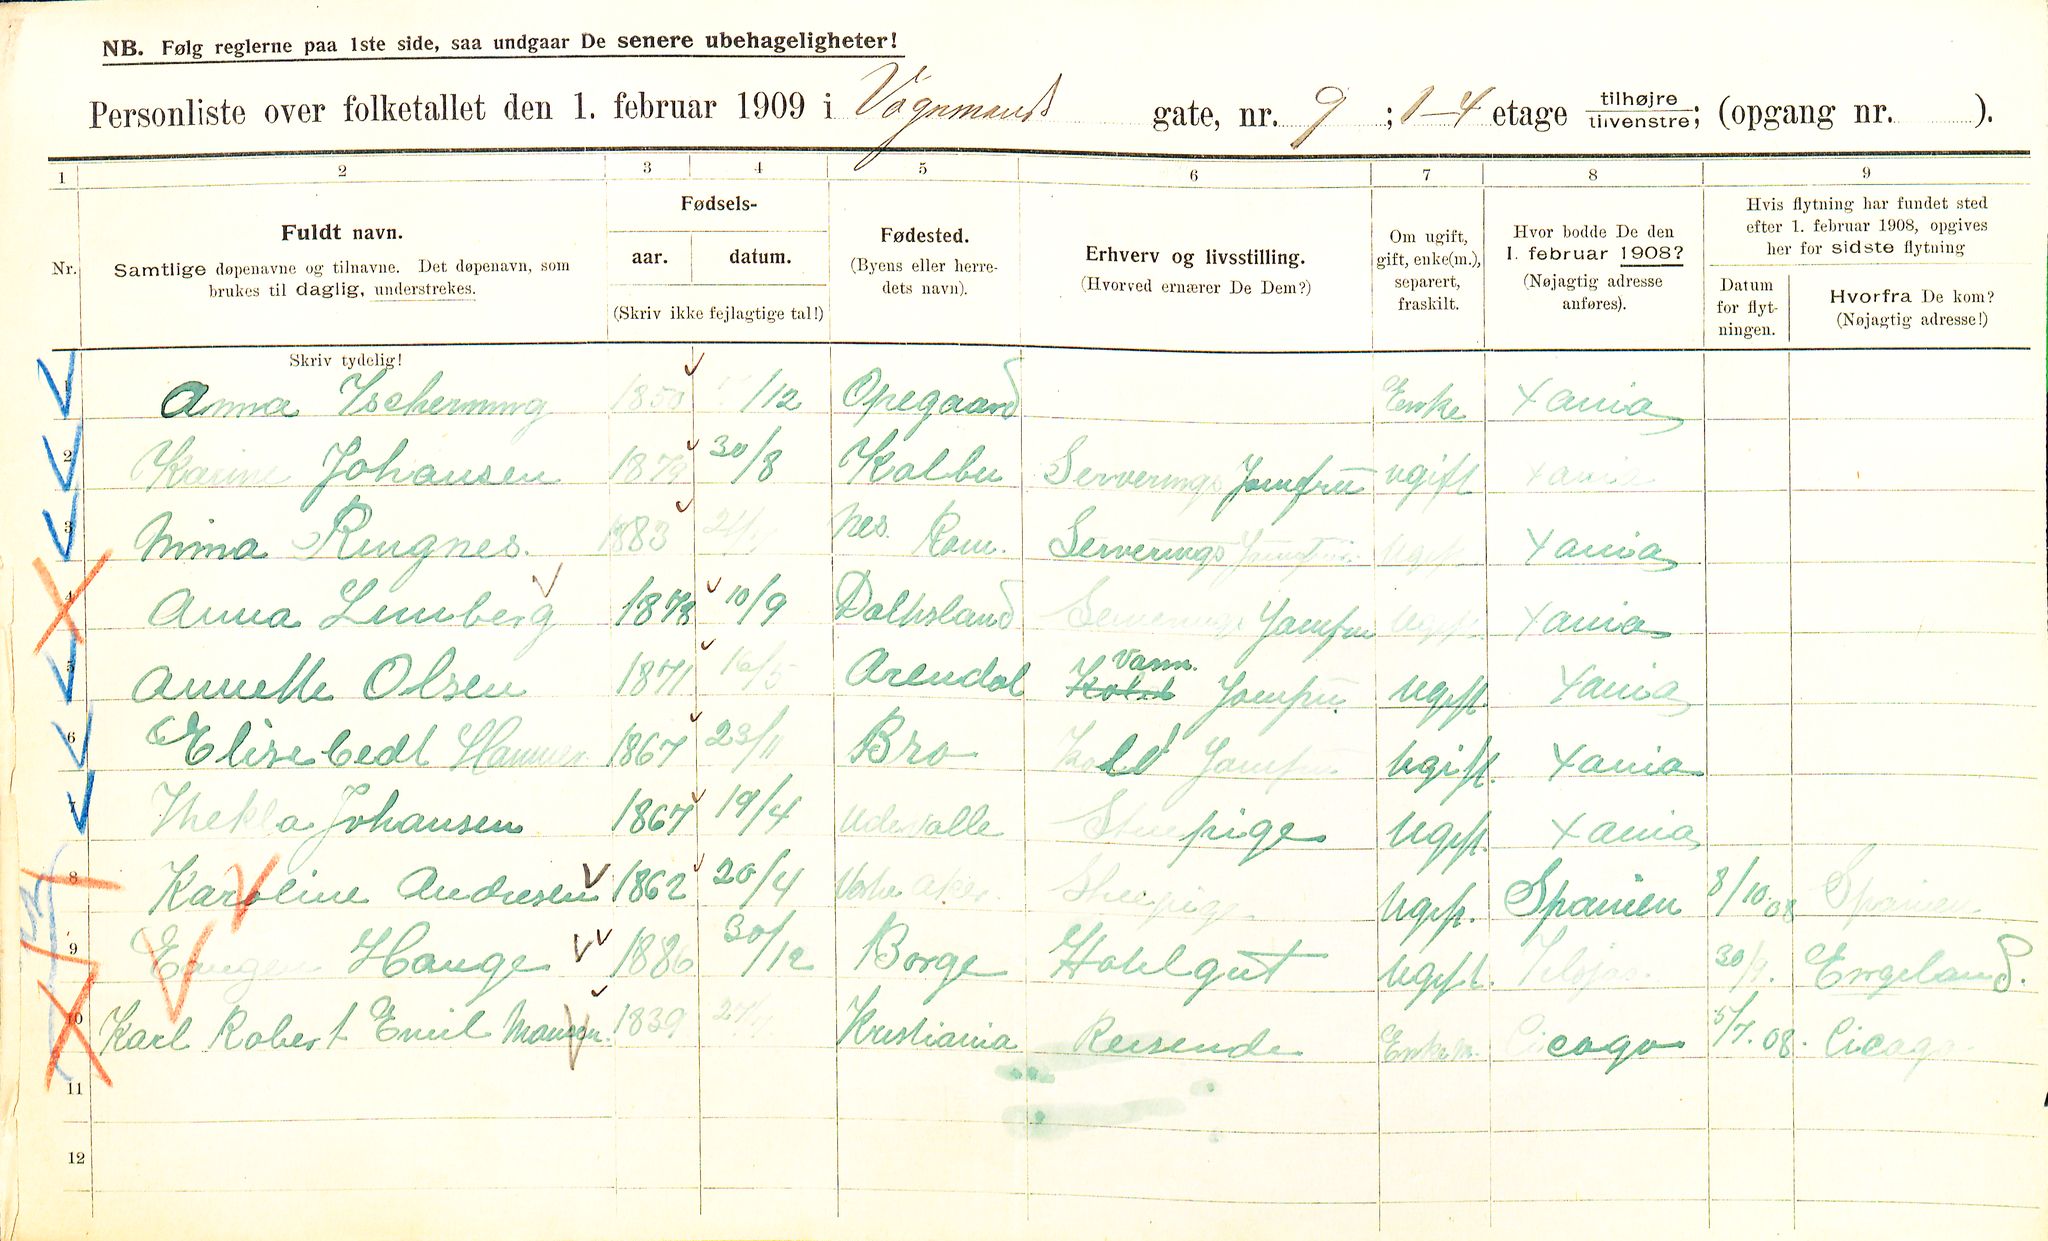 NB. Følg reglerne paa 1ste side, saa undgaar De senere ubehageligheter!
Personliste over folketallet den 1. februar 1909 i Vognmands gate, nr. 9; 1-4 etage tilhøjre tilvenstre; (opgang nr. ).
1 2 3 4 5 6 7 8 9
Nr.
Fuldt navn.
Samtlige døpenavne og tilnavne. Det døpenavn, som
brukes til daglig, understrekes.
Fødsels-
aar. datum.
(Skriv ikke fejlagtige tal!)
Fødested.
(Byens eller herre-
dets navn).
Erhverv og livsstilling.
(Hvorved ernærer De Dem?)
Om ugift,
gift, enke(m.),
separert,
fraskilt.
Hvor bodde De den
1. februar 1908?
(Nøjagtig adresse
anføres).
Hvis flytning har fundet sted
efter 1. februar 1908, opgives
her for sidste flytning
Datum
for flyt-
ningen.
Hvorfra De kom?
(Nøjagtig adresse!)
Skriv tydelig!
1 Anna Tscherning 1850 /12 Opegaard Enke Xania
2 Karine Johansen 1879 30/8 Kolbu Serverings Jomfru ugift Xania
3 Nima Ringnes. 1883 nes. Rom. Serverings Jomfru ugift Xania
4 Anna Limberg 1878 10/9 Dalhsland Serverings Jomfru ugift Xania
5 Annette Olsen 1871 16/5 Arendal Varm. Jomfru. Ugift. Xania
6 Elisebedt Hammer 1867 23/11 Bro Kold Jomfru Ugift. Xania
7 Thekla Johansen 1867 19/4 Udevalle Stuepige Ugift. Xania
8 Karoline Andresen 1862 20/4 Vestre Aker. Stuepige Ugift. Spanien 8/10 08 Spanien
9 Eugen Hauge 1886 30/12 Borge Hotelgut Ugift. 30/9. Engeland.
10 Karl Robert Emil 1839 Kristiania Reisende Enkem. Cicago 5/7. 08. Cicago
11
12